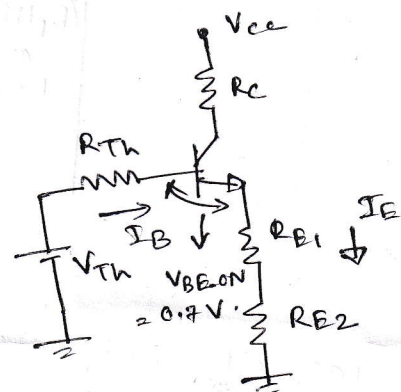 Vcc
RC
RTh
IB
VTh
VBE-ON
= 0.7 V.
RE1
IE
RE2